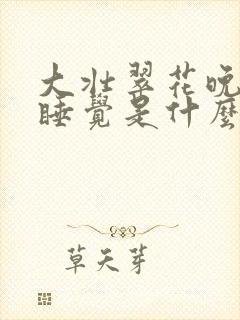 大壮翠花晚
睡覺是什麼
草天芽